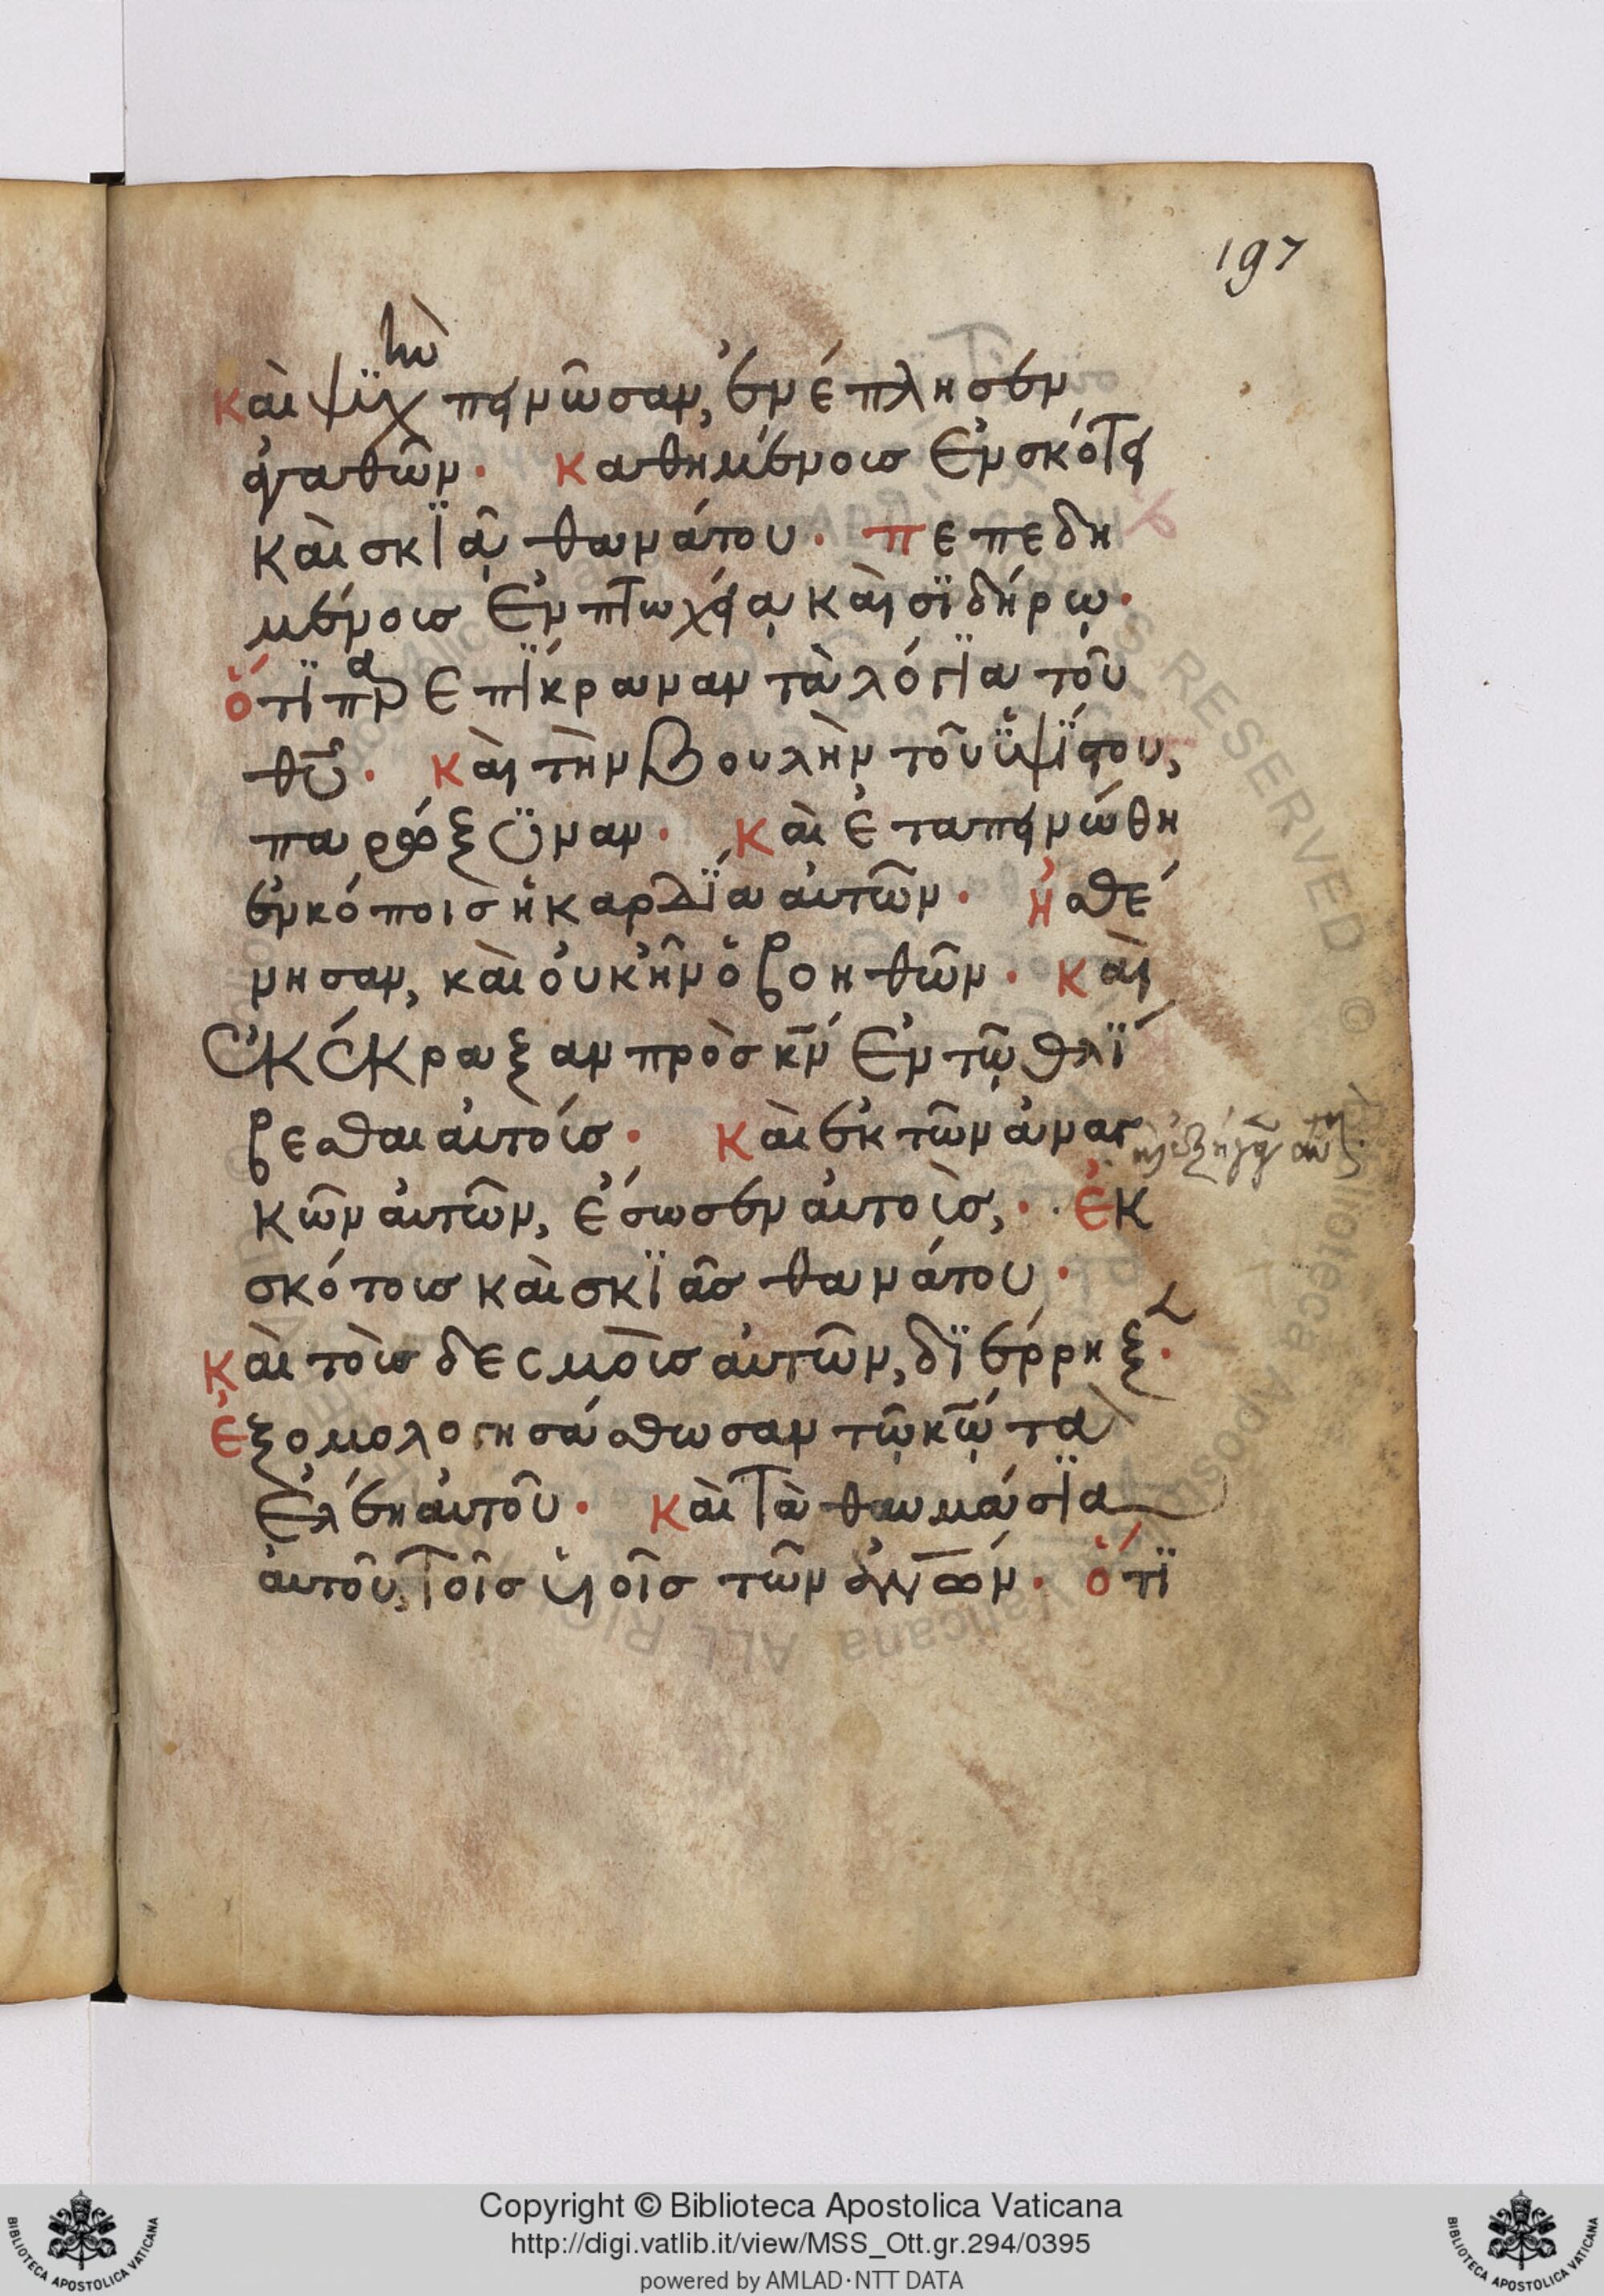 197
καὶ ψϊχὴν πεινῶσαν, ἐνέπλησεν
ἀγαθῶν· καθημένους ἐν σκότει
καὶ σκϊᾷ θανάτου· πεπεδη
μένους ἐν πτωχείᾳ καὶ σϊδήρῳ·
ὅτϊ παρεπϊκραναν τὰ λόγϊα τοῦ
θῦ· καὶ τὴν βουλὴν τοῦ ὑψίστου,
παρώξϋναν· καὶ ἐταπεινώθη
ἐν κόποις ἡ καρδΐα αὐτῶν· ἠσθέ
νησαν, καὶ οὐκ ἦν ὁ βοηθῶν· καὶ
ἐκέκραξαν πρὸς κν ἐν τῷ θλί
βεσθαι αὐτούς· καὶ ἐκ τῶν ἀναγ
κῶν αὐτῶν, ἔσωσεν αὐτοὺς,· ἐκ
σκότους καὶ σκϊᾶς θανάτου·
καὶ τοὺς δεσμοὺς αὐτῶν, δϊέρρηξ·
ἐξομολογησάσθωσαν τῷ κῷ τὰ
ἐλέη αὐτοῦ· καὶ τὰ θαυμάσϊα
αὐτοῦ, τοῖς υἱοῖς τῶν ἀνων· ὅτϊ
Copyright © Biblioteca Apostolica Vaticana
http://digi.vatlib.it/view/MSS_Ott.gr.294/0395
powered by AMLAD·NTT DATA
BIBLIOTECA APOSTOLICA VATICANA
BIBLIOTECA APOSTOLICA VATICANA